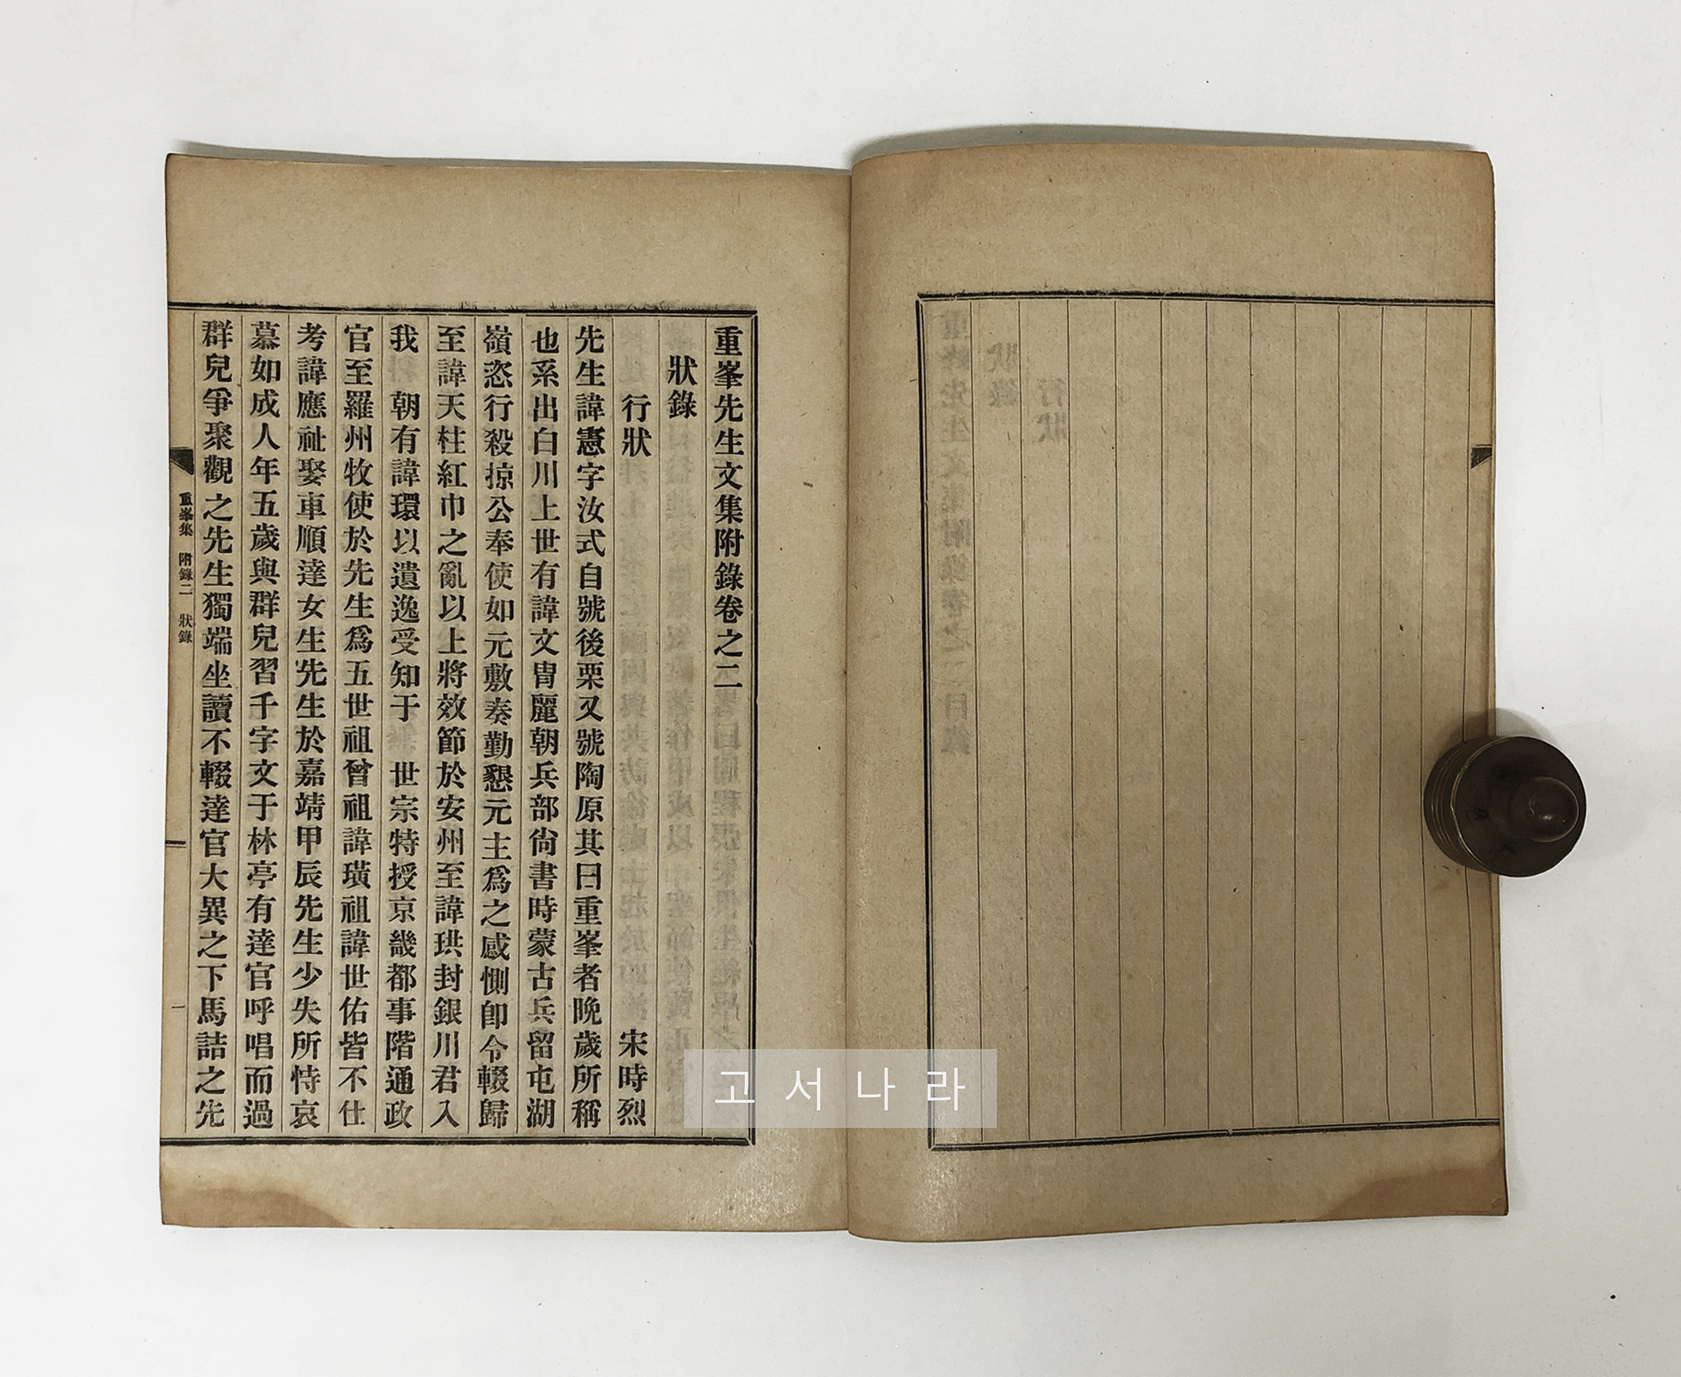 重峯先生文集附錄卷之二
狀錄
行狀 宋時烈
先生諱憲字汝式自號後栗又號陶原其曰重峯者晚歲所稱
也系出白川上世有諱文胄麗朝兵部尙書時蒙古兵留屯湖
嶺恣行殺掠公奉使如元敷奏勤懇元主爲之感惻卽令輟歸
至諱天柱紅巾之亂以上將效節於安州至諱珙封銀川君入
我 朝有諱環以遺逸受知于 世宗特授京畿都事階通政
官至羅州牧使於先生爲五世祖曾祖諱璜祖諱世佑皆不仕
考諱應祉娶車順達女生先生於嘉靖甲辰先生少失所恃哀
慕如成人年五歲與群兒習千字文于林亭有達官呼唱而過
群兒爭聚觀之先生獨端坐讀不輟達官大異之下馬詰之先
重峯集 附錄二 狀錄 一
고서나라